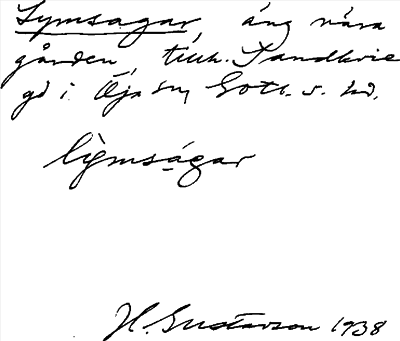 Lymsagar, äng nära
gården, tillh. Sandkvie
gd i Öja sn, Gotl. s. hd.
lỳmságar
H. Gustavson 1938